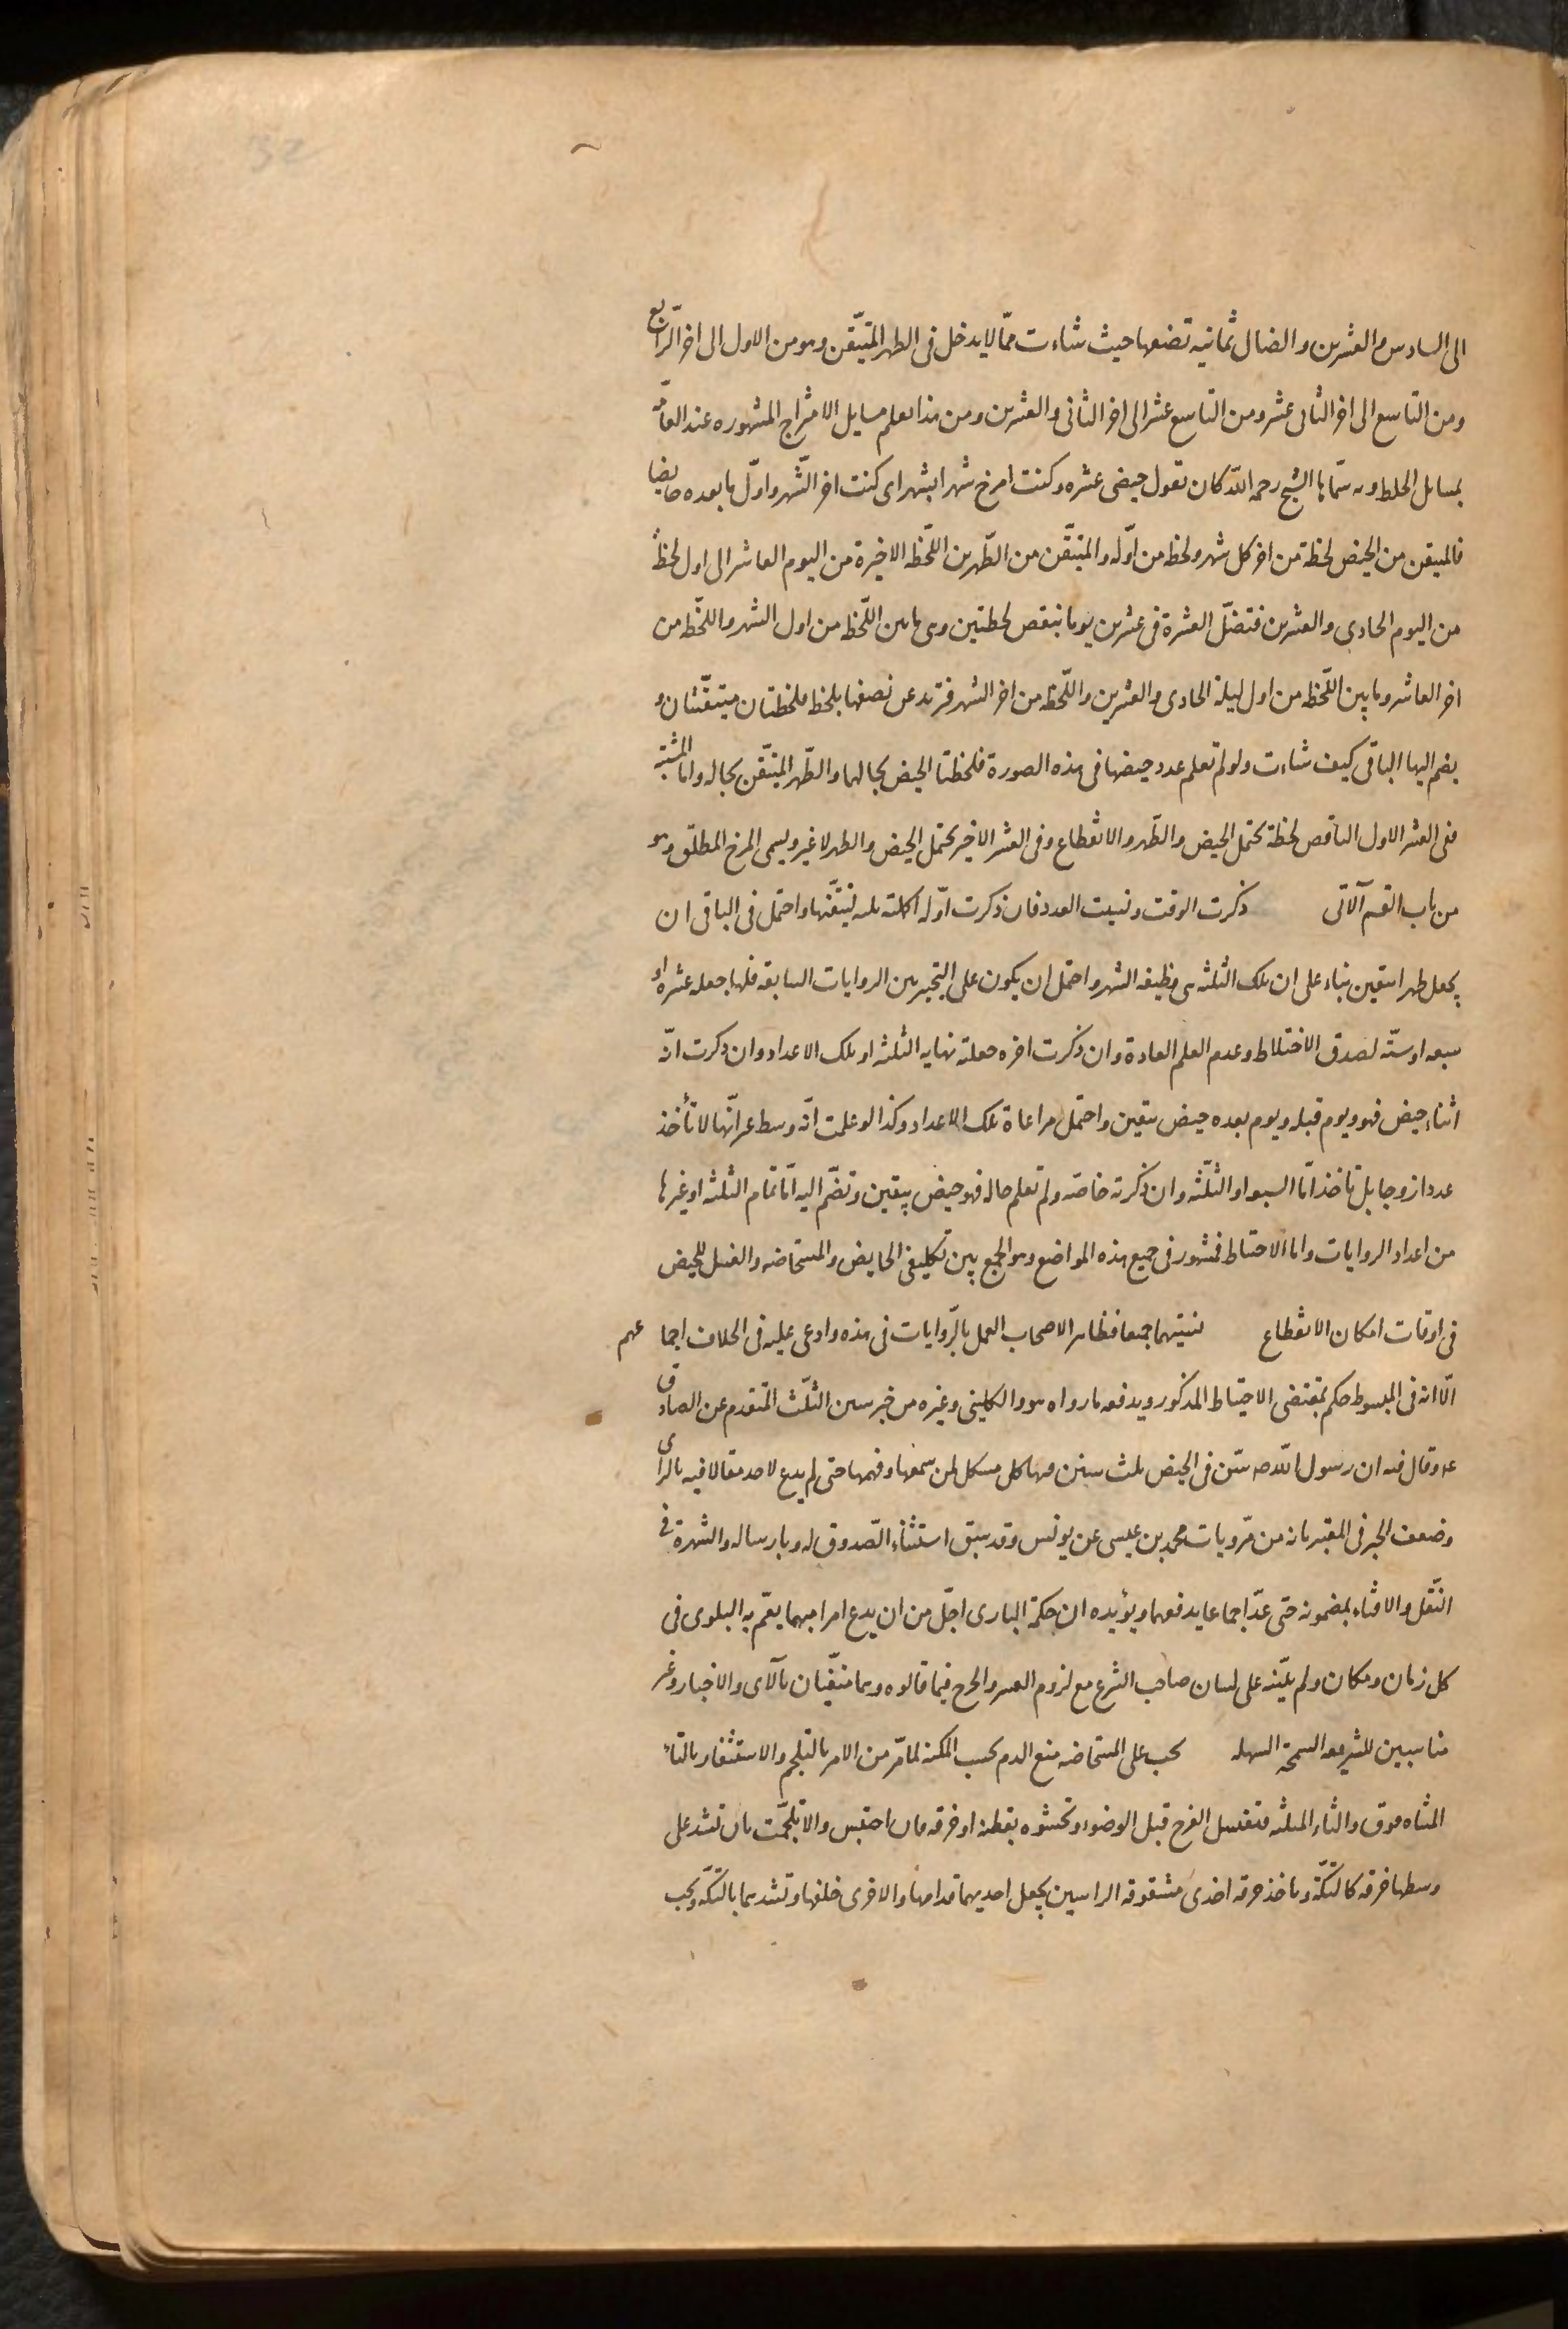 الى السادس والعشرين والضال ثمانيه تضعها حيث شاءت ممّا لا يدخل فى الطهر المتيقّن وهو من الاول الى اخر الرّابع
ومن التاسع الى اخر الثانى عشر ومن التاسع عشر الى اخر الثانى والعشرين ومن هذا يعلم مسايل الامتزاج المشهوره عند العامّة
بمسايل الخلط وبه سمّاها الشيخ رحمه اللّه كان تقول حيضى عشره وكنت امزج شهرا بشهر اى كنت اخر الشّهر واوّل ما بعده حايضا
فالمتيقن من الحيض لحظة من اخر كل شهر ولحظه من اوّله والمتيقّن من الطّهر من اللّحظه الاخيرة من اليوم العاشر الى اول لحظة
من اليوم الحادى والعشرين فتضلّ العشرة فى عشرين يوما ينقص لحظتين وهى ما بين اللّحظه من اول الشهر واللّحظه من
اخر العاشر وما بين اللّحظه من اول ليلة الحادى والعشرين واللّحظه من اخر الشهر فتزيد عن نصفها بلحظه فلحظتان متيقّنتان و
يضم اليها الباقى كيف شاءت ولو لم تعلم عدد حيضها فى هذه الصورة فلحظتا الحيض بحالهما والطّهر المتيقّن بحاله واما المشتبه
ففى العشر الاول الناقص لحظة يحتمل الحيض والطّهر والانقطاع وفى العشر الاخير يحتمل الحيض والطهر لا غير ويسمى المزج المطلق وهو
من باب القسم الآتى ذكرت الوقت ونسيت العدد فان ذكرت اوّله اكملته ثلثه لتيقّنها واحتمل فى الباقى ان
يجعل طهرا بيقين بناء على ان تلك الثلثه هى وظيفه الشهر واحتمل ان يكون على التخيير بين الروايات السابقه فلها جعله عشره او
سبعه او ستّه لصدق الاختلاط وعدم العلم العادة وان ذكرت اخره جعلته نهايه الثلثه او تلك الاعداد وان ذكرت انّه
اثناء حيض فهو ويوم قبله ويوم بعده حيض بيقين واحتمل مراعاة تلك الاعداد وكذا لو علمت انّه وسط غير انّها لا تأخذ
عددا زوجا بل تاخذ امّا السبع او الثلثه وان ذكرته خاصّه ولم تعلم حاله فهو حيض بيقين وتضّم اليه امّا تمام الثلثه او غيرها
من اعداد الروايات واما الاحتياط فمشهور فى جميع هذه المواضع وهو الجمع بين تكليفى الحايض والمستحاضه والغسل للحيض
فى اوقات امكان الانقطاع نسيتهما جميعا فظاهر الاصحاب العمل بالرّوايات فى هذه وادعى عليه فى الخلاف اجما عهم
الّا انه فى المبسوط حكم بمقتضى الاحتياط المذكور ويدفعه ما رواه هو والكلينى وغيره من خبر سنن الثلث المتقدم عن الصادق
عه وقال فيه ان رسول اللّه صه سّن فى الحيض ثلث سنن فيها كل مشكل لمن سمعها وفهمها حتى لم يدع لاحد مقالا فيه بالراى
وضعف الخبر فى المعتبر بانه من مرّويات محمد بن عيسى عن يونس وقد سبق استثناء الصّدوق له وبارساله والشهرة فى
النّقل والافتاء بمضمونه حتى عدّ اجماعا يدفعهما ويؤيده ان حكمة البارى اجلّ من ان يدع امرا مبهما يعمّ به البلوى فى
كل زمان ومكان ولم يبّينه على لسان صاحب الشرع مع لزوم العسر والحرج فيما قالوه وهما منفيّان بالآى والاخبار وغير
مناسبين للشريعه السمحة السهله يجب على المستحاضه منع الدم بحسب المكنه لما مرّ من الامر بالتلجم والاستثفار بالتاء
المثناه فوق والثاء المثلثه فتغسل الفرج قبل الوضوء وتحشوه بقطنه او خرقه فان احتبس والا تلجّمت بان تشد على
وسطها خرقه كالتكّه وتاخذ خرقه اخرى مشقوقه الراسين يجعل احديهما قدامها والاخرى خلفها وتشدهما بالتكّه ويجب